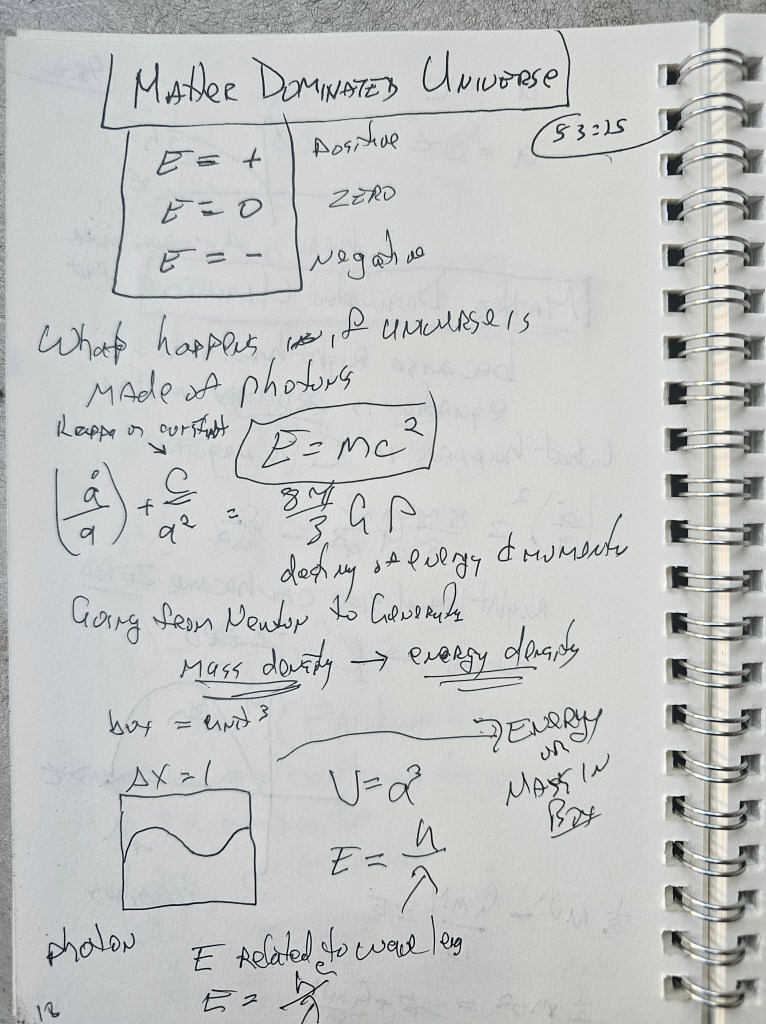 Matter Dominated Universe
53:25
E = + Positive
E = 0 Zero
E = - Negative
What happens if universe is
made of photons
Kappa or constant
E = mc²
(ȧ/a) + C/a² = 8π/3 G ρ
density of energy & momenta
Going from Newton to General
Mass density → energy density
box = unit³
→ Energy
or
Mass in
Box
ΔX = 1
V = a³
E = h/λ
photon E related to wave leng
E = hc/λ
18